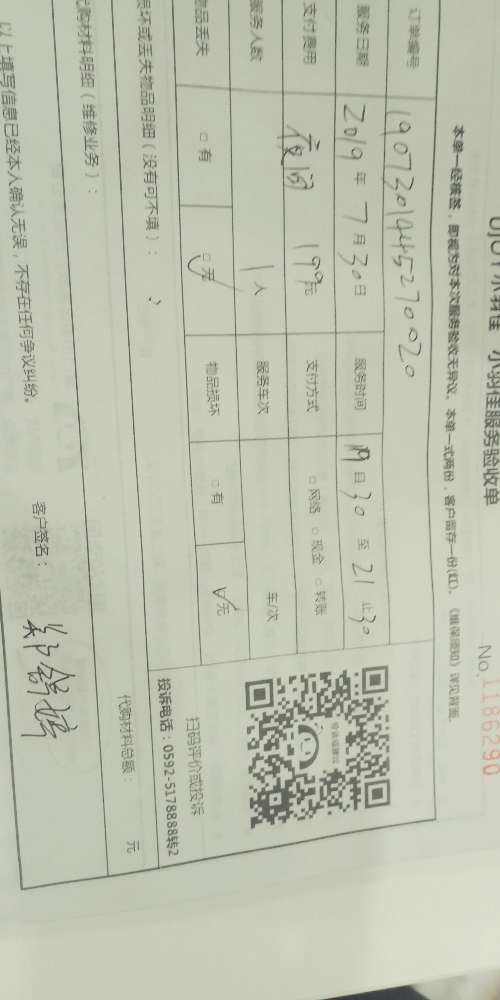 小羽佳服务验收单
No.1186290
本单一经核签，即视为对本次服务验收无异议。本单一式两份，客户留存一份(红)。《维保须知》详见背面。
订单编号
服务日期 2019年7月30日 服务时间 19自30至21止30
支付费用 夜间 199元 支付方式 □网络 □现金 □转账
服务人数 1人 服务车次 车/次
物品丢失 □有 □无 物品损坏 □有 □无
损坏或丢失物品明细（没有可不填）：
扫码评价或投诉
投诉电话：0592-5178888转2
代购材料明细（维修业务）：
代购材料总额： 元
以上填写信息已经本人确认无误，不存在任何争议纠纷。
客户签名：